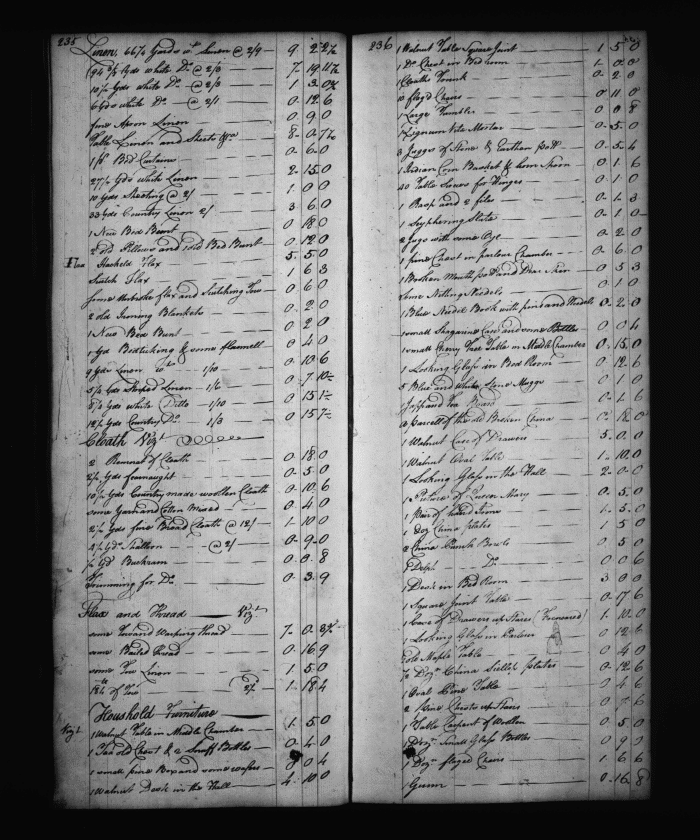 235
Linen, 66¾ Yards wt. Linen @ 2/9 — 9 . 2 . 2½
94⅗ Yds white Do. @ 2/3 — 7 . 19 . 11½
10½ Yds white Do. @ 2/3 — 1 3 . 0¾
6 Yds white Do. — @ 2/1 — 0 . 12 . 6
fine Apron Linen — 0 . 9 . 0
Table Linen and Sheets — 8 . 0 . 7½
1 pr Bed Curtains — 0 . 6 . 0
27½ Yds white Linen — 2 . 15 . 0
10 Yds Sheeting @ 2/ — 1 0 0
33 Yds Country Linen 2/ — 3 6 . 0
1 New Bed Bunt — 0 18 0
2 old Pillows and 1 old Bed Bunt — 0 . 12 0
Flax Hackeld Flax — 5 . 5 0
Switch Flax — 1 6 3
some flax and Switching Tow — 0 6 0
2 old Ironing Blankets — 0 . 2 0
1 New Bed Bunt — 0 2 0
1 yd Bedticking & some flannell — 0 4 0
9 Yds Linen 1/10 — 0 . 10 6
5¼ Yds Striped Linen — 1/6 — 0 . 7 . 10½
8¼ Yds white Ditto — 1/10 — 0 15 1½
12½ Yds Country Do. — 1/3 — 0 15 7½
Cloath Vizt
2 Remnat of Cloath — 0 . 18 . 0
2½ Yds fearnaught — 0 . 5 . 0
10½ Yds Country made woollen Cloath — 0 . 10 . 6
some Yarn and Cotten Mixed — 0 . 4 0
2½ Yds fine Broad Cloath @ 12/ — 1 . 10 0
4½ Yds Shalloon — @ 2/ — 0 . 9 . 0
½ Yd Buckram — 0 . 0 . 8
Trimming for Do. — 0 . 3 . 9
Flax and Thread — Vizt
some Tow and Warping thread — 7 . 0 . 8¾
some Boiled thread — 0 . 16 . 9
some Tow Linen — 1 . 5 0
184 lb of Tow 2/ — 1 . 18 . 4
Houshold Furniture
Vizt 1 Walnut Table in Middle Chamber — 1 . 5 0
1 Tea old Chest & 2 Snuff Bottles — 0 . 4 . 0
1 small pine Box and some wafers — 0 0 4
1 Walnut Desk in the Hall — 4 . 10 0
236
1 Walnut Table Square Joint — 1 . 5 0
1 Do. Chest in Bed room — 1 . 0 . 0
1 Cloaths Trunk — 0 . 2 . 0
10 flagd Chairs — 0 11 . 0
1 Large Tumbler — 0 0 8
1 Lignum Vite Mortar — 0 . 5 . 0
3 Juggs of Stone & Earthen — 0 . 5 . 4
1 Indian Corn Basket & horn Spoon — 0 . 1 . 6
20 Table Screws for Hinges — 0 . 1 0
1 Rasp and 2 files — 0 . 1 . 3
1 Scyphering Slate — 0 . 1 . 0
2 Jugs with some Oyl — 0 . 2 0
1 pine Chest in parlour Chamber — 0 . 6 0
1 Broken Mouth pot and Bear Skin — 0 . 5 . 3
some Netting Needels — 0 1 0
1 Blue Needel Book with pins and Needels — 0 . 2 . 0
1 small Shagarine Case and some Bottles — 0 0 4
1 small Cherry Tree Table in Middle Chamber — 0 . 15 . 0
1 Looking Glass in Bed Room — 0 . 12 . 6
5 Blue and White Lane Muggs — 0 1 0
1 Japand Tea Board — 0 . 1 . 6
a parcell of the old Broken China — 0 . 18 . 0
1 Walnut Case of Drawers — 5 . 0 . 0
1 Walnut Oval Table — 1 . 10 . 0
1 Looking Glass in the Hall — 2 . 0 . 0
1 Picture of Queen Mary — 0 . 5 . 0
1 pair of hand Irons — 1 . 5 . 0
1 Doz China plates — 1 5 0
2 China Punch Bowls — 0 5 0
5 Delph — Do. — 0 0 6
1 Desk in Bed Room — 3 0 0
1 Square Joint Table — 0 . 7 6
1 Case of Drawers up Stares (Fineered) — 1 . 10 . 0
1 Looking Glass in Parlour — 0 12 6
1 ole Maple Table — 0 4 0
½ Dozn China Scollop plates — 0 . 12 . 6
1 Oval Pine Table — 0 4 6
2 pine Chests up Stares — 0 7 6
1 Table Carpet of Woollen — 0 . 5 0
1 Dozn Small Glass Bottles — 0 9 9
1 Dozn flaged Chairs — 1 6 6
1 Gunn — 0 . 16 . 8